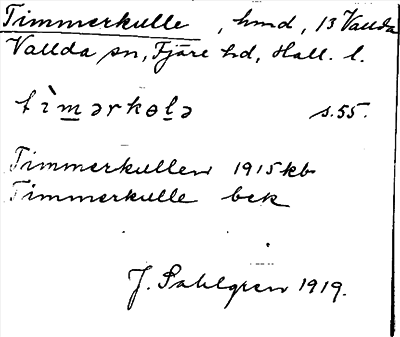 Timmerkulle, hmd, 13 Vallda
Vallda sn, Fjäre hd, Hall. l.
tìmərkɵlə s. 55.
Timmerkullen 1915 kb
Timmerkulle bek
J. Sahlgren 1919.